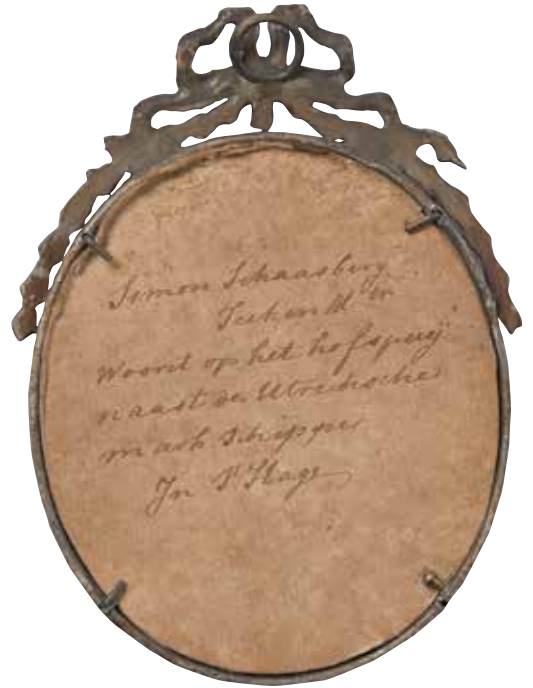 Simon Schaasberg
Teeken Mr in
Woont op het hofspuij
naast de Utrechsche
mark Schipper
In S' Hage